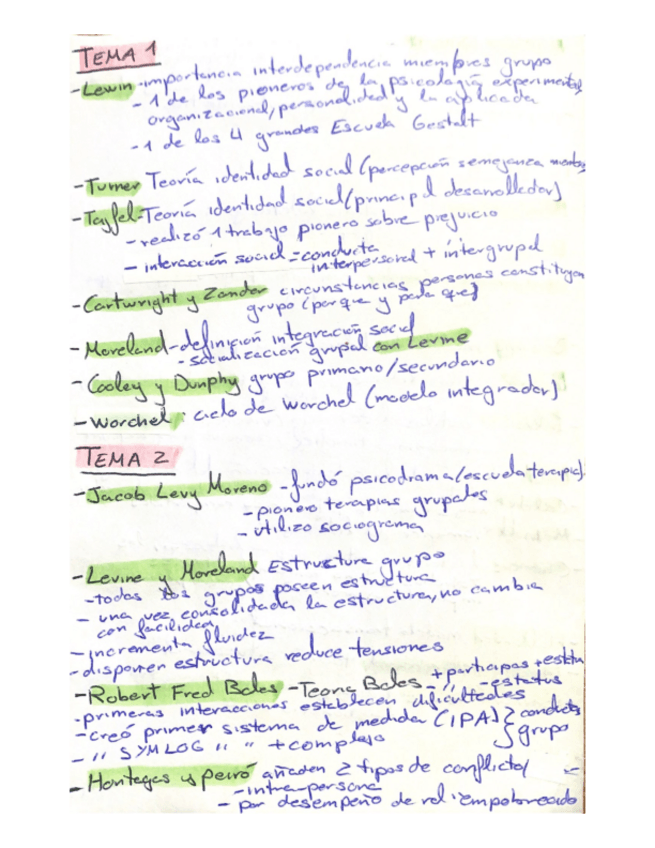 TEMA 1
-Lewin -importancia interdependencia miembros grupo
- 1 de los pioneros de la psicología experimental,
organizacional, personalidad y la aplicada
- 1 de los 4 grandes Escuela Gestalt
-Turner Teoría identidad social (percepción semejanza
-Tajfel -Teoría identidad social (principal desarrollador)
- realizó 1 trabajo pionero sobre prejuicio
- interacción social = conducta
interpersonal + intergrupal
-Cartwright y Zander circunstancias personas constituyen
grupo (por que y para que)
-Moreland -definición integración social
- socialización grupal con Levine
-Cooley y Dunphy grupo primario/secundario
-Worchel : ciclo de Worchel (modelo integrador)
TEMA 2
-Jacob Levy Moreno -fundó psicodrama (escuela terapia).
- pionero terapias grupales
- utilizo sociograma
-Levine y Moreland Estructura grupo
-todos los grupos poseen estructura
- una vez consolidada la estructura, no cambia
con facilidad
-incrementa fluidez
-disponen estructura reduce tensiones
-Robert Fred Bales -Teoria Bales + participas + estatus
- " - estatus
-primeras interacciones establecen dificultades
-creó primer sistema de medida (IPA) } conducta
- " SYMLOG " " + complejo } grupo
-Montegas y Peiró añaden 2 tipos de conflicto/
-intra-persona
- por desempeño de rol empobrecido